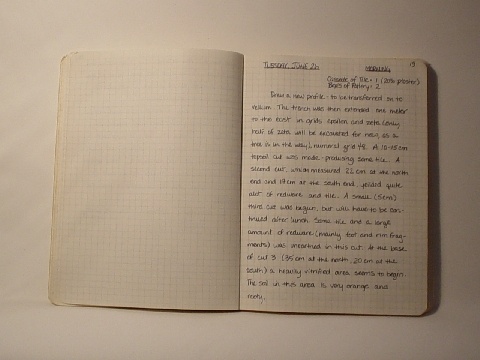 TUESDAY, JUNE 26 MORNING 19
Crusade of Tile - 1 (20% plaster)
Boxes of Pottery - 2
Drew a new profile - to be transferred on to
vellum. The trench was then extended one meter
to the east in grids epsilon and zeta (only
half of zeta will be excavated for now, as a
tree is in the way), numeral grid 48. A 10-15 cm
topsoil cut was made - producing some tile. A
second cut, which measured 22 cm at the north
end and 17 cm at the south end yielded quite
alot of redware and tile. A small (5cm)
third cut was begun, but will have to be con-
tinued after lunch. Some tile and a large
amount of redware (mainly foot and rim frag-
ments) was unearthed in this cut. At the base
of cut 3 (35 cm at the north, 20 cm at the
south) a heavily vitrified area seems to begin.
The soil in this area is very orange and
rooty.